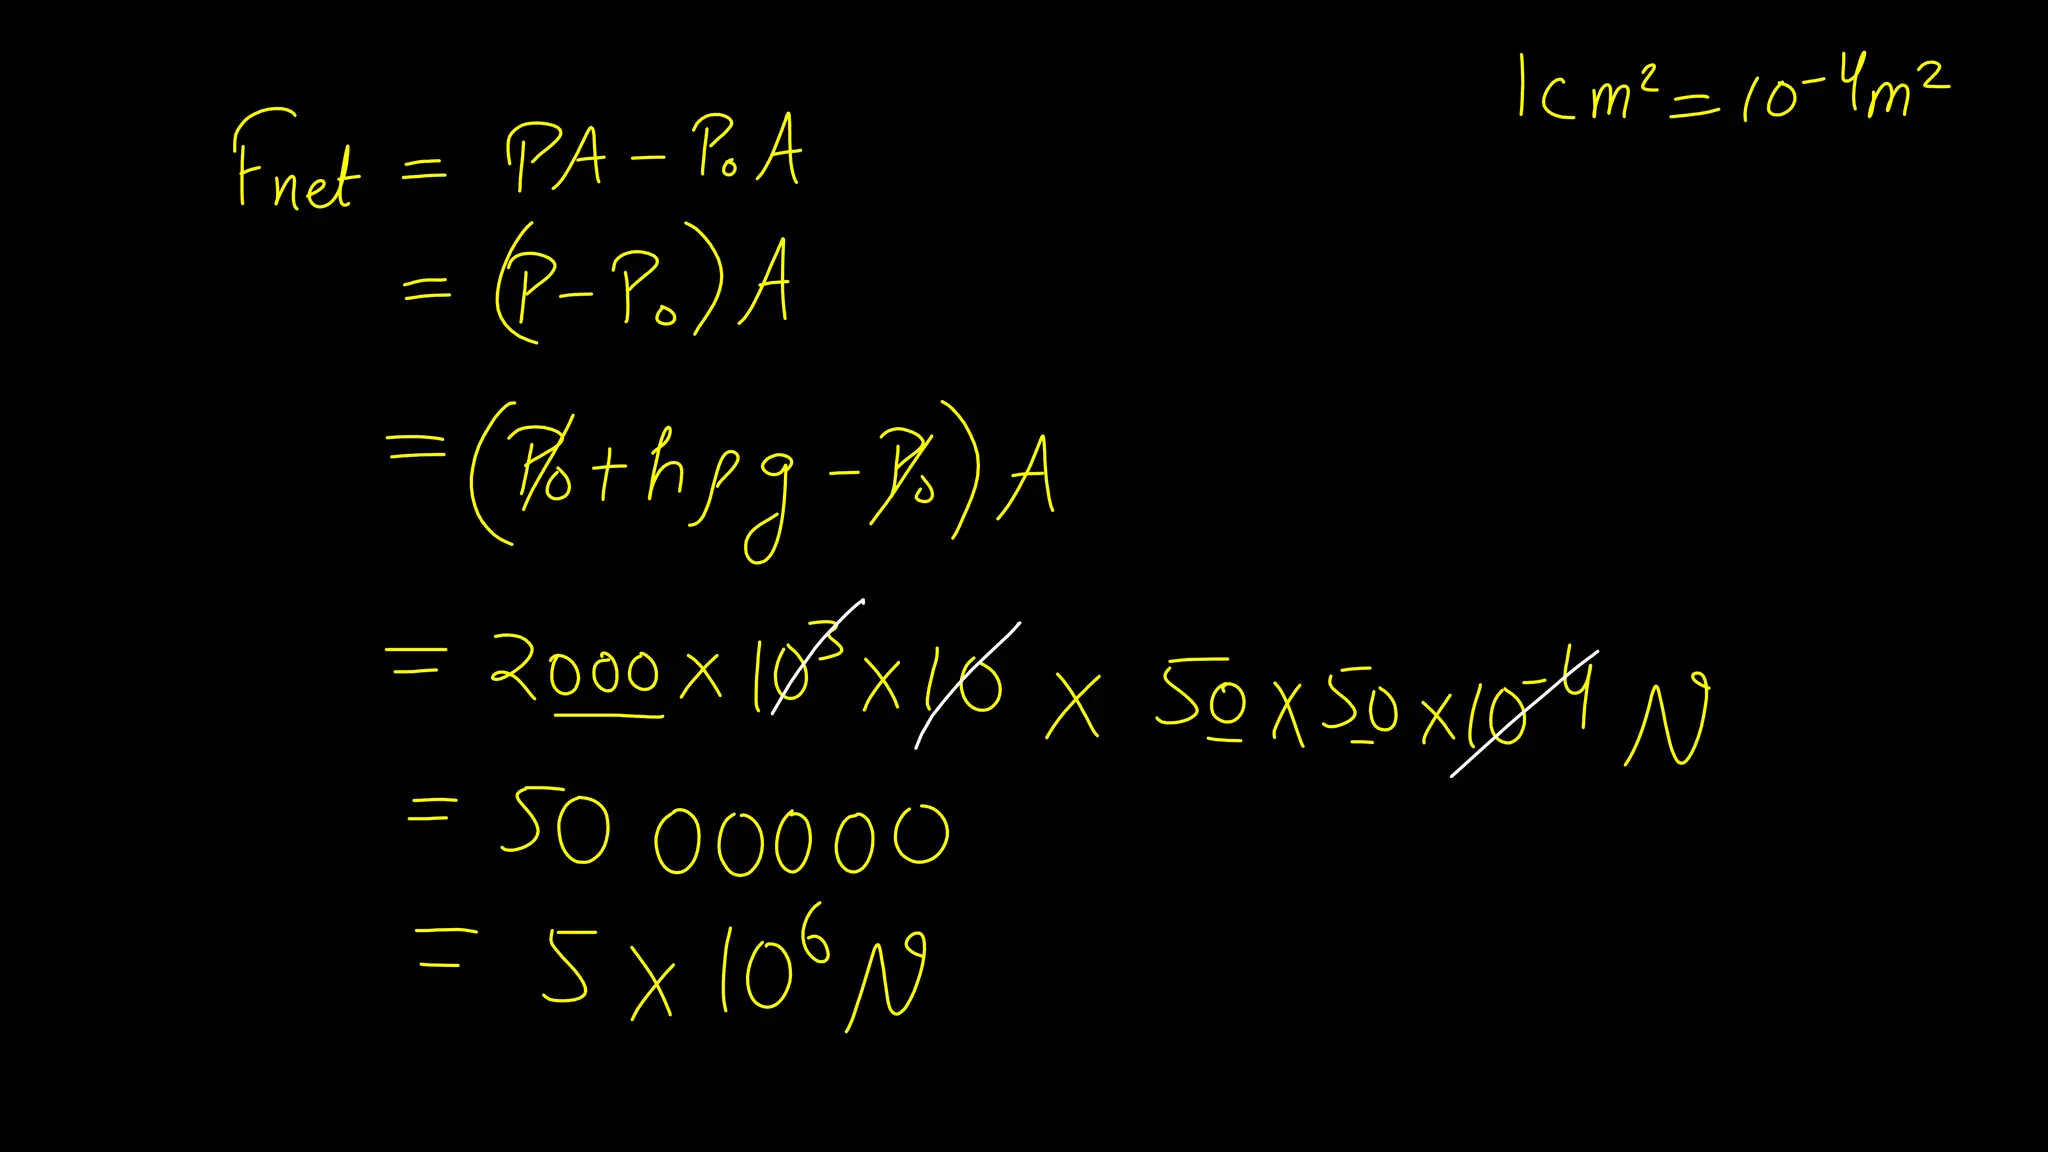 1cm²=10⁻⁴m²
Fnet = PA - P₀A
= (P-P₀)A
= (P₀+hρg-P₀)A
= 2000×10³×10 × 50×50×10⁻⁴ N
= 50 00000
= 5×10⁶ N